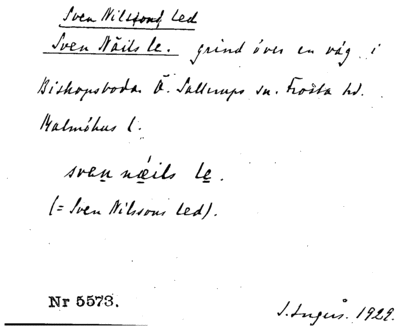 Sven Nilssons Led
Sven Näils le. grind över en väg i
Biskopsboda Ö. Sallerups sn. Frosta hd.
Malmöhus l.
sven næils le.
(= Sven Nilssons led).
Nr 5573.
S. Ingers. 1929.